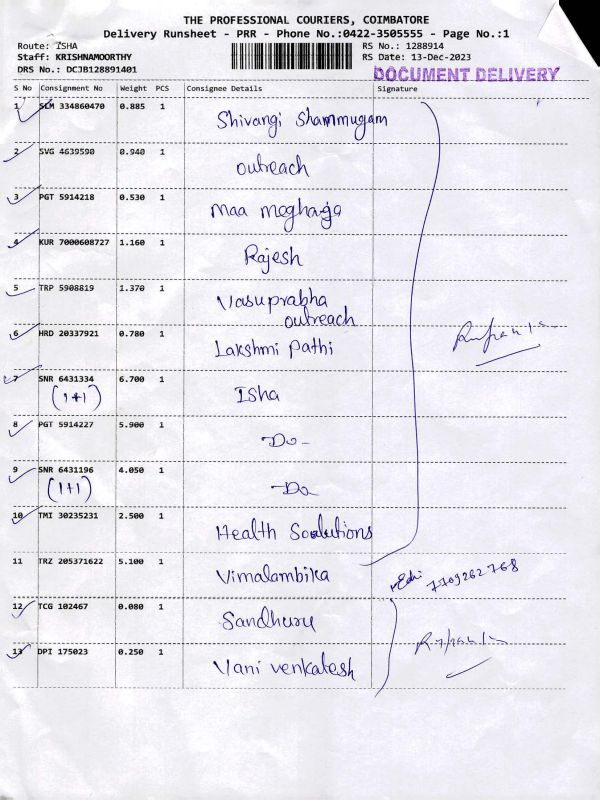 THE PROFESSIONAL COURIERS, COIMBATORE
Delivery Runsheet - PRR - Phone No.:0422-3505555 - Page No.:1
Route: ISHA
Staff: KRISHNAMOORTHY
DRS No.: DCJB128891401
RS No.: 1288914
RS Date: 13-Dec-2023
DOCUMENT DELIVERY
S No Consignment No Weight PCS Consignee Details Signature
1 SLM 334860470 0.885 1 Shivangi Shammugam
2 SVG 4639590 0.940 1 outreach
3 PGT 5914218 0.530 1 maa
4 KUR 7000608727 1.160 1 Rajesh
5 TRP 5908819 1.370 1 Vasuprabha
outreach
6 HRD 20337921 0.780 1 Lakshmi Pathi
7 SNR 6431334 6.700 1 Isha
(1+1)
8 PGT 5914227 5.900 1 Do-
9 SNR 6431196 4.050 1 -Do
(1+1)
10 TMI 30235231 2.500 1 Health Soolutions
11 TRZ 205371622 5.100 1 Vimalambika
7709262768
12 TCG 102467 0.080 1 Sandhuru
13 DPI 175023 0.250 1 Vani venkatesh